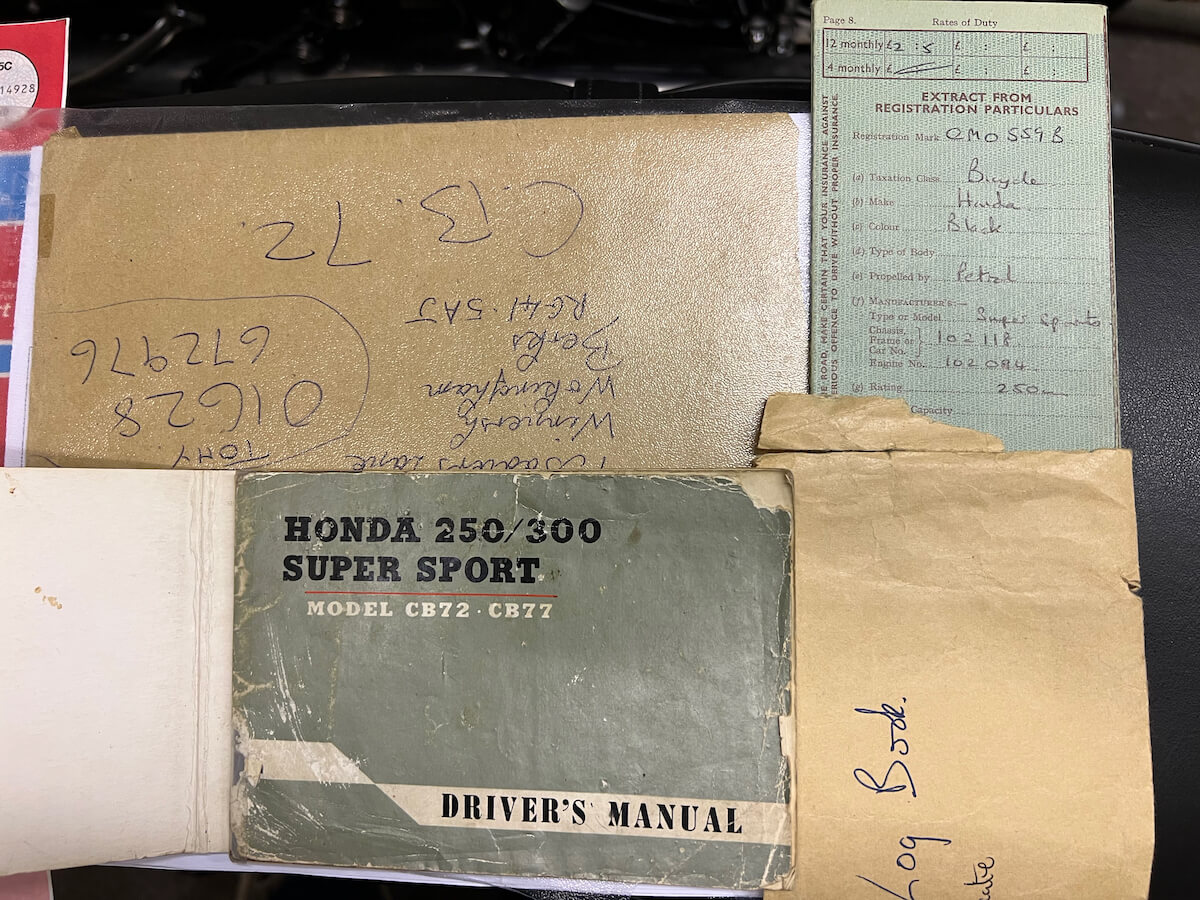 5C
14928
C.B. 72.
RG41 5AJ
Berks
Wokingham
Winnersh
TONY
01628
672976
Page 8. Rates of Duty
12 monthly £2 : 5 £ : £ :
4 monthly £ £ : £ :
EXTRACT FROM
REGISTRATION PARTICULARS
Registration Mark CMO 559 B
(a) Taxation Class Bicycle
(b) Make Honda
(c) Colour Black
(d) Type of Body
(e) Propelled by Petrol
(f) MANUFACTURER'S
Type or Model Super Sports
Chassis,
Frame or
Car No. 102118
Engine No. 102084
(g) Rating 250
Capacity
ROAD, MAKE CERTAIN THAT YOUR INSURANCE AGAINST
SERIOUS OFFENCE TO DRIVE WITHOUT PROPER INSURANCE.
HONDA 250/300
SUPER SPORT
MODEL CB72 · CB77
DRIVER'S MANUAL
Log Book.